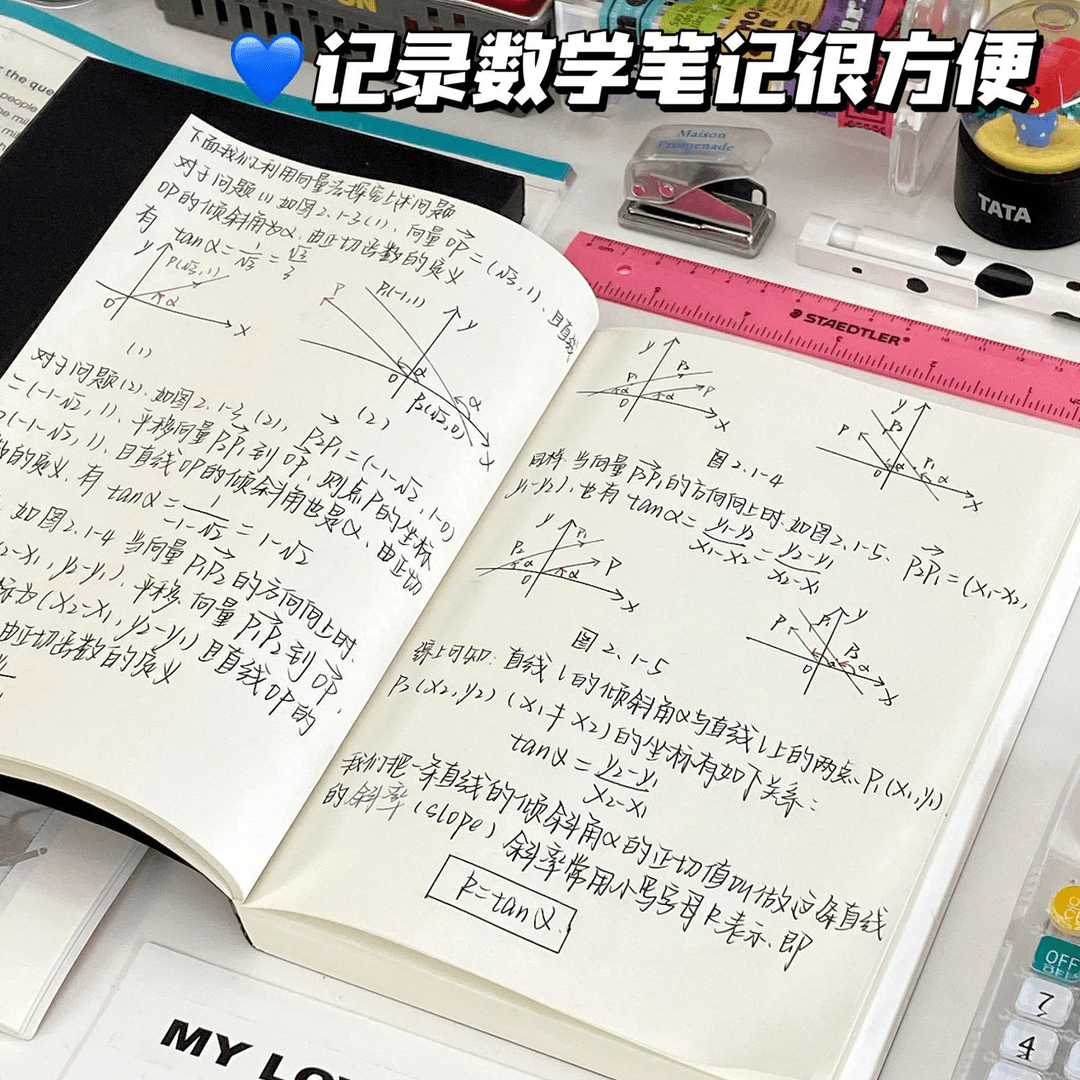 记录数学笔记很方便
the que
people
Maison
Promenade
TATA
STAEDTLER
下面我们利用向量法探究上述问题
对于问题(1).如图2.1-3(1),向量OP=(√3,1),且直线
OP的倾斜角为α.由正切函数的定义
有 tanα=1/√3=√3/3
y
P(√3,1)
α
O
x
(1)
P
P1(-1,1)
y
α
O
α
P2(√2,0)
x
(2)
对于问题(2).如图2.1-3(2),P2P1=(-1-√2,1-0)
=(-1-√2,1).平移向量P2P1到OP,则点P的坐标
(-1-√2,1),且直线OP的倾斜角也是α.由正切
数的定义.有tanα=1/(-1-√2)=1-√2
如图2.1-4 当向量P1P2的方向向上时.
x2-x1,y2-y1).平移向量P1P2到OP,
标为(x2-x1,y2-y1)且直线OP的
由正切函数的定义
y
P2
P1
P
α
α
O
x
y
P
P2
P1
α
O
x
图2.1-4
同样.当向量P2P1的方向向上时.如图2.1-5、P2P1=(x1-x2,
y1-y2),也有tanα=(y1-y2)/(x1-x2)=(y2-y1)/(x2-x1)
y
P1
P2
P
α
α
O
x
y
P
P2
α
α
O
x
图2.1-5
综上可知:直线l的倾斜角α与直线l上的两点、P1(x1,y1)
P2(x2,y2)(x1≠x2)的坐标有如下关系:
tanα=(y2-y1)/(x2-x1)
我们把一条直线的倾斜角α的正切值叫做这条直线
的斜率(slope)斜率常用小写字母k表示.即
k=tanα
MY LO
OFF
7
4